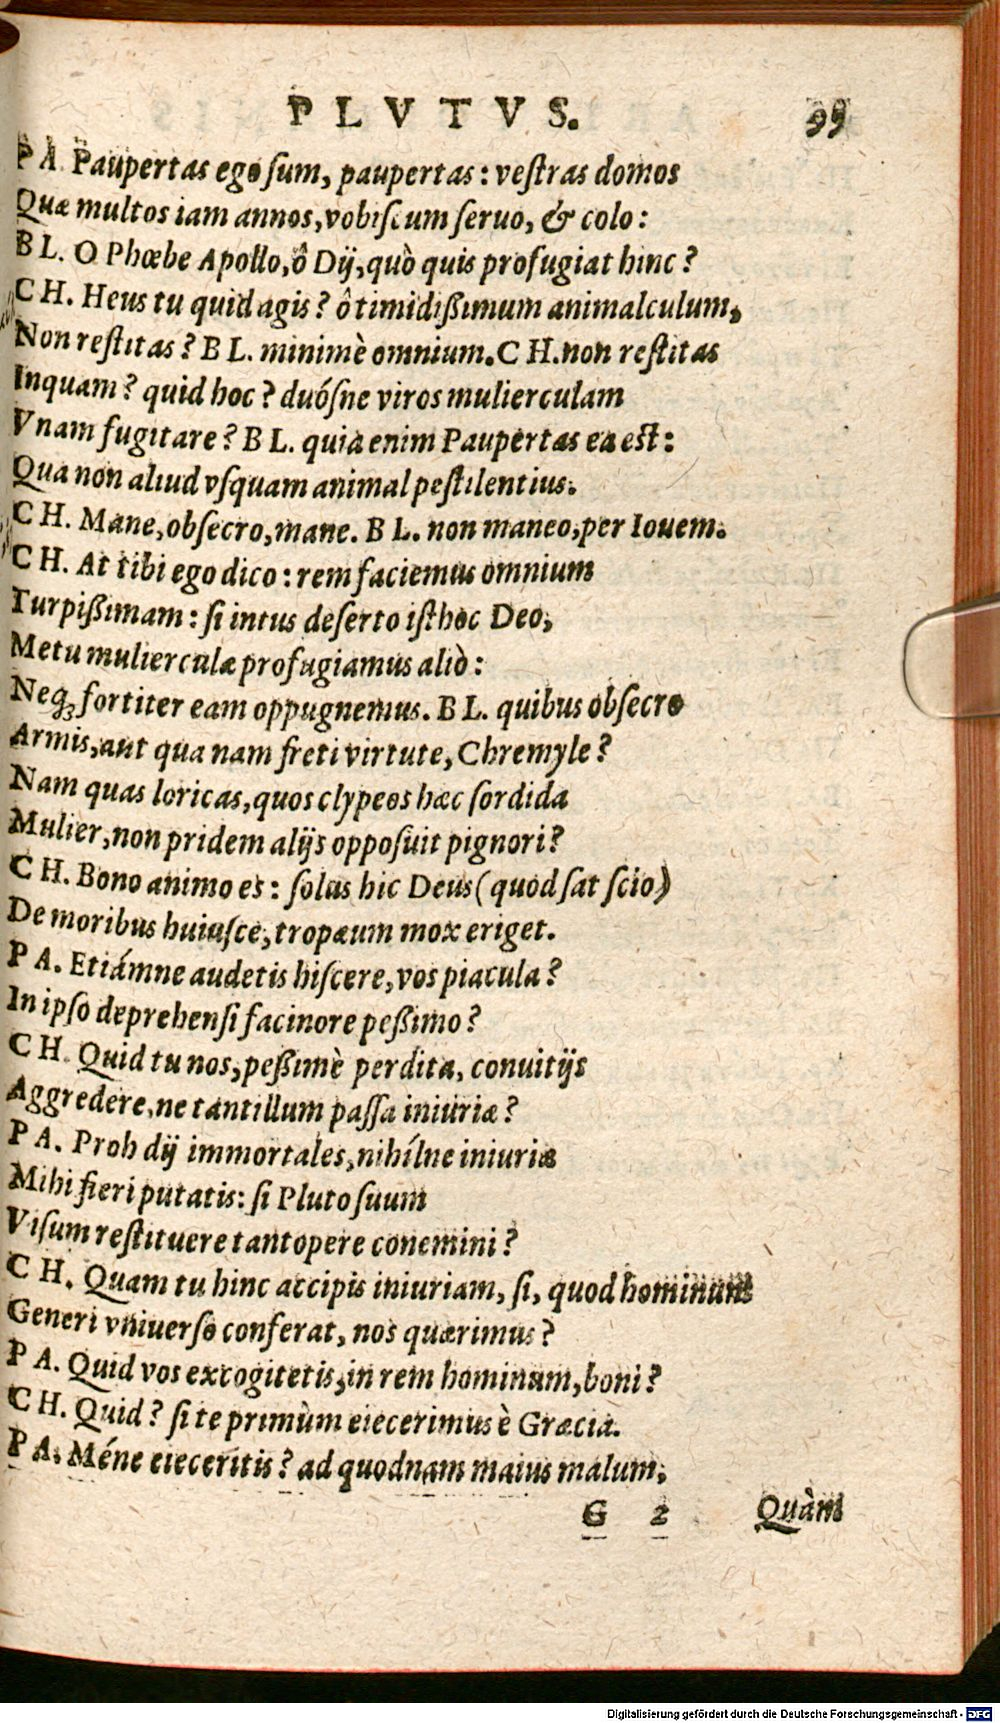 PLVTVS. 99
PA. Paupertas ego sum, paupertas: vestras domos
Quæ multos iam annos, vobiscum seruo, & colo:
BL. O Phœbe Apollo, ô Dij, quò quis profugiat hinc?
CH. Heus tu quid agis? ô timidißimum animalculum,
Non restitas? BL. minimè omnium. CH. non restitas
Inquam? quid hoc? duósne viros mulierculam
Vnam fugitare? BL. quia enim Paupertas ea est:
Qua non aliud vsquam animal pestilentius.
CH. Mane, obsecro, mane. BL. non maneo, per Iouem.
CH. At tibi ego dico: rem faciemus omnium
Turpißimam: si intus deserto isthoc Deo,
Metu mulierculæ profugiamus aliò:
Neq; fortiter eam oppugnemus. BL. quibus obsecro
Armis, aut qua nam freti virtute, Chremyle?
Nam quas loricas, quos clypeos hæc sordida
Mulier, non pridem alijs opposuit pignori?
CH. Bono animo es: solus hic Deus (quod sat scio)
De moribus huiusce, tropæum mox eriget.
PA. Etiámne audetis hiscere, vos piacula?
In ipso deprehensi facinore peßimo?
CH. Quid tu nos, peßimè perdita, conuitijs
Aggredere, ne tantillum passa iniuriæ?
PA. Proh dij immortales, nihílne iniuriæ
Mihi fieri putatis: si Pluto suum
Visum restituere tantopere conemini?
CH. Quam tu hinc accipis iniuriam, si, quod hominum
Generi vniuerso conferat, nos quærimus?
PA. Quid vos excogitetis, in rem hominum, boni?
CH. Quid? si te primùm eiecerimus è Græcia.
PA. Méne eieceritis? ad quodnam maius malum,
G 2 Quàm
Digitalisierung gefördert durch die Deutsche Forschungsgemeinschaft - DFG